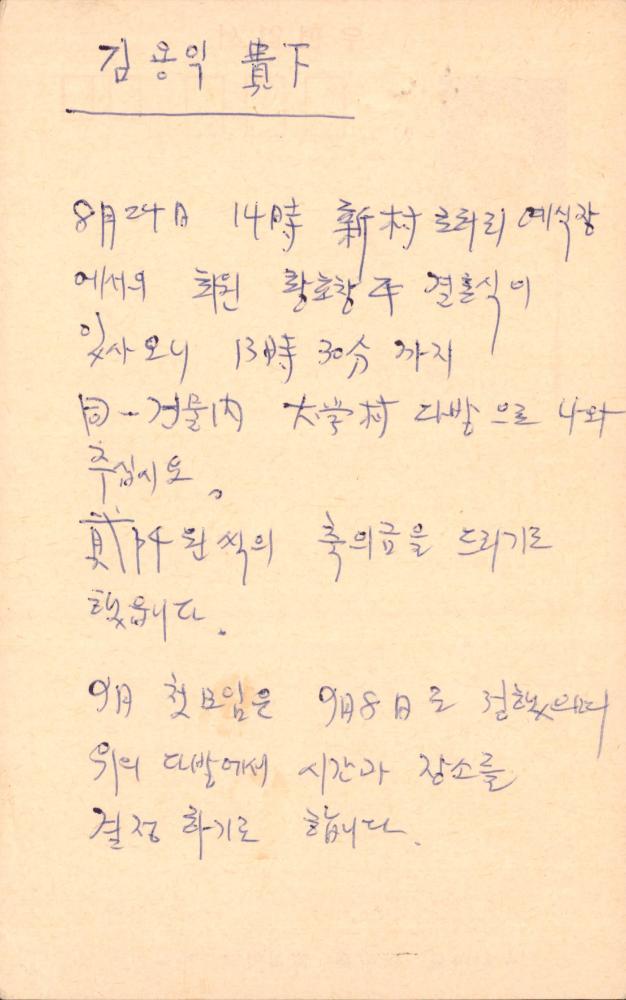 김용익 貴下
8月24日 14時 新村 로타리 예식장
에서의 회원 황호창 平 결혼식이
있사오니 13時 30分 까지
同一건물內 大学村 다방으로 나와
주십시오。
貳仟원씩의 축의금을 드리기로
했읍니다.
9月 첫모임은 9月8日로 정했으며
위의 다방에서 시간과 장소를
결정하기로 합니다.